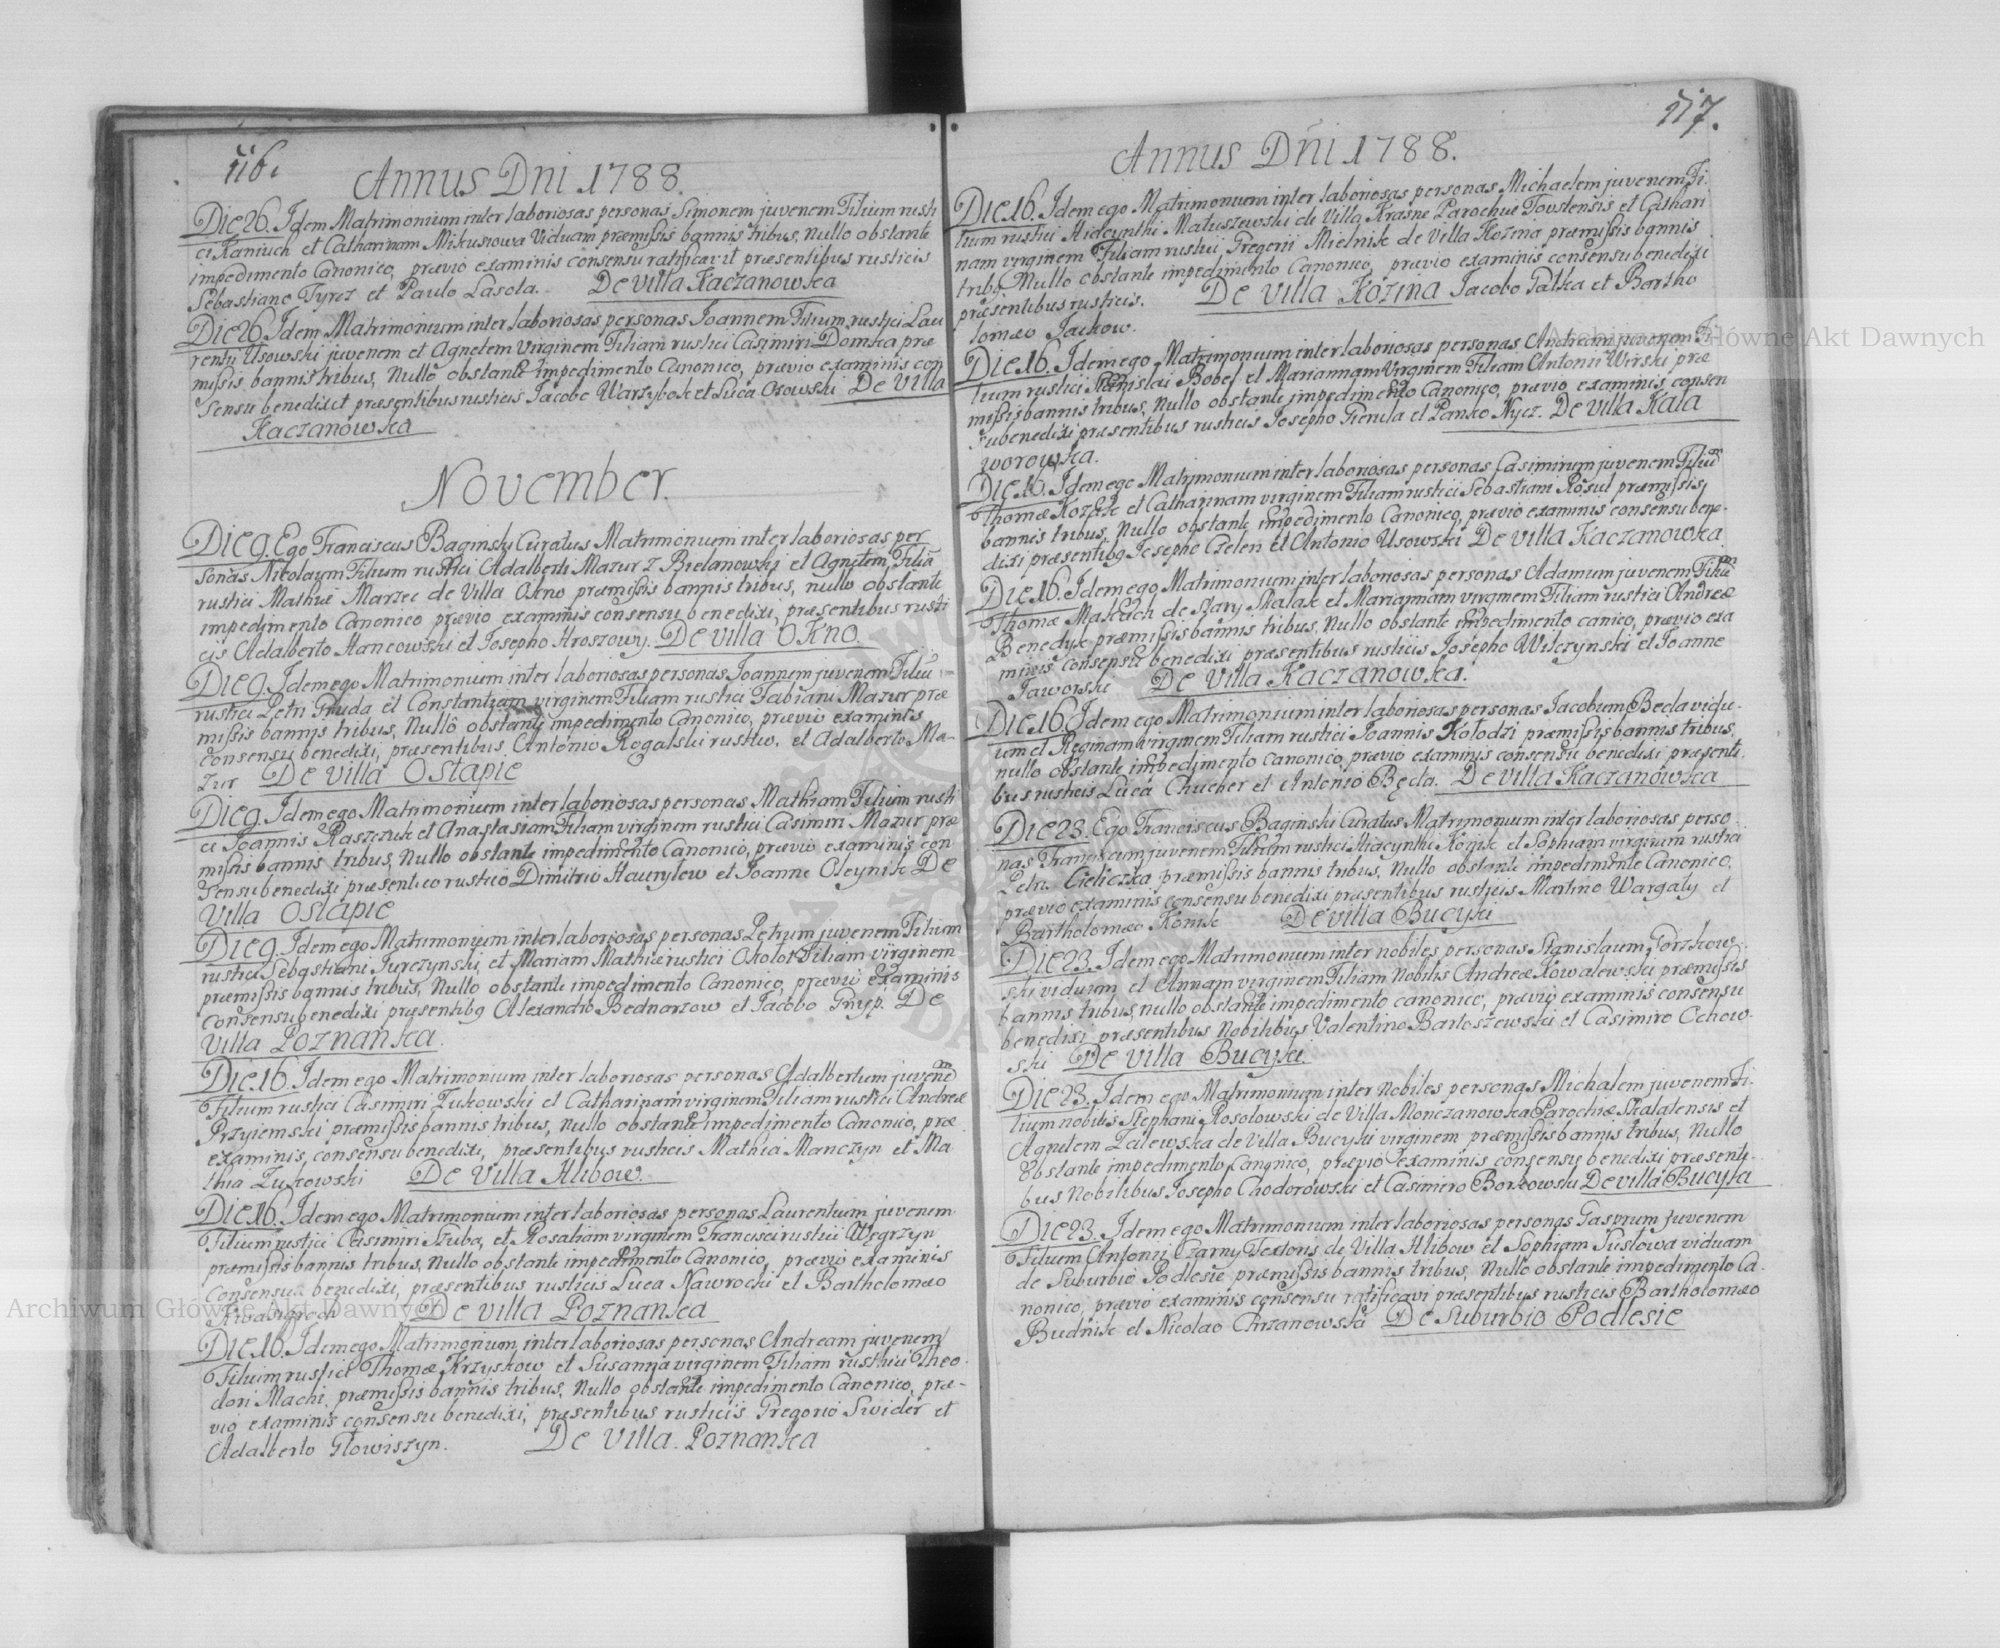 116.
Annus Dni 1788.
Die 26. Idem Matrimonium inter laboriosas personas Simonem juvenem Filium rusti
ci Kaniuch et Catharinam Mikusiowa Viduam præmissis bannis tribus, Nullo obstante
impedimento Canonico, prævio examinis consensu ratificavit præsentibus rusticis
Sebastiano Tyrcz et Paulo Lasota. De Villa Kaczanowka
Die 26. Idem Matrimonium inter laboriosas personas Joannem Filium rustici Lau
rentii Usowski juvenem et Agnetem Virginem Filiam rustici Casimiri Domka præ
missis bannis tribus, Nullo obstante impedimento Canonico, prævio examinis con
sensu benedixit præsentibus rusticis Jacobo Warzybok et Luca Osowski De Villa
Kaczanowka
November.
Die 9. Ego Franciscus Baginski Curatus Matrimonium inter laboriosas per
sonas Nicolaum Filium rustici Adalberti Mazur z Bielanowki et Agnetem Filia
rustici Mathiæ Marzec de Villa Okno præmissis bannis tribus, nullo obstante
impedimento Canonico prævio examinis consensu benedixi, præsentibus rusti
cis Adalberto Hancowski et Josepho Hroszowy. De Villa OKno.
Die 9. Idem ego Matrimonium inter laboriosas personas Joannem juvenem Filiu
rustici Petri Gruda et Constantiam virginem Filiam rustici Fabiani Mazur præ
missis bannis tribus, Nullo obstante impedimento Canonico, prævio examinis
consensu benedixi, præsentibus Antonio Rogalski rustico. et Adalberto Ma-
zur De Villa Ostapie
Die 9. Idem ego Matrimonium inter laboriosas personas Mathiam Filium rusti
ci Joannis Raszczuk et Anastasiam Filiam virginem rustici Casimiri Mazur præ
missis bannis tribus, Nullo obstante impedimento Canonico, prævio examinis con
sensu benedixi præsentico rustico Dimitrio Hawrylew et Joanne Oleynik De
Villa Ostapie
Die 9. Idem ego Matrimonium inter laboriosas personas Petrum juvenem Filium
rustici Sebastiani Jurczynski, et Mariam Mathiæ rustici Okolot Filiam virginem
præmissis bannis tribus, Nullo obstante impedimento Canonico, prævio examinis
consensu benedixi præsentibq Alexandro Bednarzow et Jacobo Gnyp. De
Villa Poznanka.
Die 16. Idem ego Matrimonium inter laboriosas personas Adalbertum juvene
Filium rustici Casimiri Zukowski et Catharinam virginem Filiam rustici Andreæ
Przyiemski præmissis bannis tribus, nullo obstante impedimento Canonico, præ
examinis, consensu benedixi, præsentibus rusticis Mathia Manczyn et Ma
thia Zukowski De Villa Hlibow.
Die 16. Idem ego Matrimonium inter laboriosas personas Laurentium juvenem
Filium rustici Casimiri Szuba, et Rosaliam virginem Francisci rustici Węgrzyn
præmissis bannis tribus, Nullo obstante impedimento Canonico, prævio examinis
Consensu benedixi, præsentibus rusticis Luca Nawrocki et Bartholomæo
De Villa Poznanka
Die 16. Idem ego Matrimonium inter laboriosas personas Andream juvenem
Filium rustici Thomæ Krzyskow et Susanna virginem Filiam rustici Theo
dori Machi, præmissis bannis tribus, Nullo obstante impedimento Canonico, præ-
vio examinis consensu benedixi, præsentibus rusticis Gregorio Swider et
Adalberto Głowiszyn. De Villa. Poznanka
117.
Annus Dni 1788.
Die 16. Idem ego Matrimonium inter laboriosas personas Michaelem juvenem Fi.
lium rustici Hiacynthi Matuszewski de Villa Krasne Parochiæ Tovstensis et Cathari
nam virginem Filiam rustici Gregorii Mielnik de Villa Kozina præmissis bannis
tribq Nullo obstante impedimento Canonico, prævio examinis consensu benedixi
præsentibus rusticis. De Villa Kozina Jacobo Pałka et Bartho
lomæo Jackow.
Die 16. Idem ego Matrimonium inter laboriosas personas Andream juvenem Fi
lium rustici Stanislai Bobef et Mariannam Virginem Filiam Antonii Wirski præ
missis bannis tribus, Nullo obstante impedimento Canonico, prævio examinis consen
su benedixi præsentibus rusticis Josepho Fierula et Panko Nycz. De Villa Kała
worowka.
Die 16. Idem ego Matrimonium inter laboriosas personas Casimirum juvenem Filiu
Thomæ Kozak et Catharinam virginem Filiam rustici Sebastiani Rosul præmissis
bannis tribus, Nullo obstante impedimento Canonico, prævio examinis consensu bene-
dixi præsentibq Josepho Czelen et Antonio Usowski De Villa Kaczanowka.
Die 16. Idem ego Matrimonium inter laboriosas personas Adamum juvenem Filiu
Thomæ Matkach de Stary Skałat et Mariannam virginem Filiam rustici Andreæ
Benedyk præmissis bannis tribus, Nullo obstante impedimento canico, prævio exa
minis consensu benedixi præsentibus rusticis Josepho Wilczynski et Joanne
Jaworski De Villa Kaczanowka.
Die 16. Idem ego Matrimonium inter laboriosas personas Jacobum Beda vidu-
um et Reginam virginem Filiam rustici Joannis Kołodzi præmissis bannis tribus,
nullo obstante impedimento Canonico, prævio examinis consensu benedixi præsenti.
bus rusticis Luca Chucher et Antonio Będa. De Villa Kaczanowka
Die 23. Ego Franciscus Baginski Curatus Matrimonium inter laboriosas perso-
nas Franciscum juvenem Filium rustici Hiacynthi Konik et Sophiam virginem rustici
Petri Cieliczka præmissis bannis tribus, Nullo obstante impedimento Canonico,
prævio examinis consensu benedixi præsentibus rusticis Martino Wargały et
Bartholomæo Konik De Villa Bucyki
Die 23. Idem ego Matrimonium inter nobiles personas Stanislaum Gorzkow-
ski viduum et Annam virginem Filiam Nobilis Andreæ Kowalewski præmissis
bannis tribus, nullo obstante impedimento canonico, prævio examinis consensu
benedixi præsentibus Nobilibus Valentino Bartoszewski et Casimiro Ochow-
ski De Villa Bucyki.
Die 23. Idem ego Matrimonium inter Nobiles personas Michalem juvenem Fi.
lium nobilis Stephani Rosolowski de Villa Monczanowka Parochiæ Skalatensis et
Agnetem Zalewska de Villa Bucyki virginem præmissis bannis tribus, Nullo
obstante impedimento Canonico, prævio examinis consensu benedixi præsenti-
bus Nobilibus Josepho Chodorowski et Casimiro Borkowski De Villa Bucyka
Die 23. Idem ego Matrimonium inter laboriosas personas Gasprum juvenem
Filium Antonii Czarny Textoris de Villa Hlibow et Sophiam Suslowa viduam
de Suburbio Podlesie præmissis bannis tribus, Nullo obstante impedimento Ca-
nonico, prævio examinis consensu ratificavi præsentibus rusticis Bartholomæo
Budnik et Nicolao Chrzanowski De Suburbio Podlesie
Archiwum Główne Akt Dawnych
Archiwum Główne Akt Dawnych